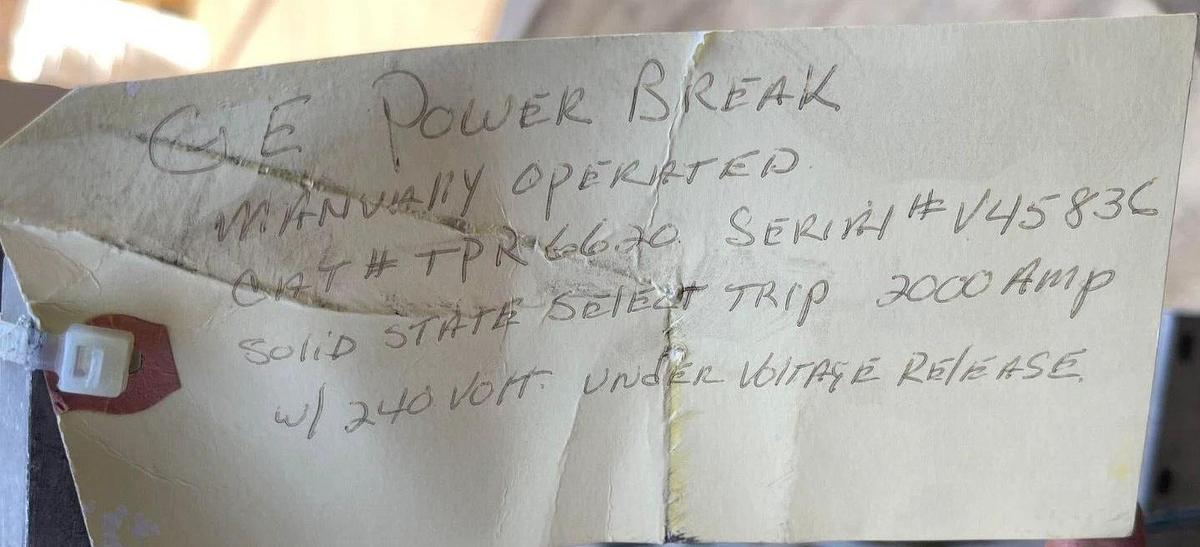 GE POWER BREAK
MANUALLY OPERATED
CAT # TPR6620 SERIAL # V45836
SOLID STATE SELECT TRIP 2000 AMP
W/ 240 VOLT UNDER VOLTAGE RELEASE